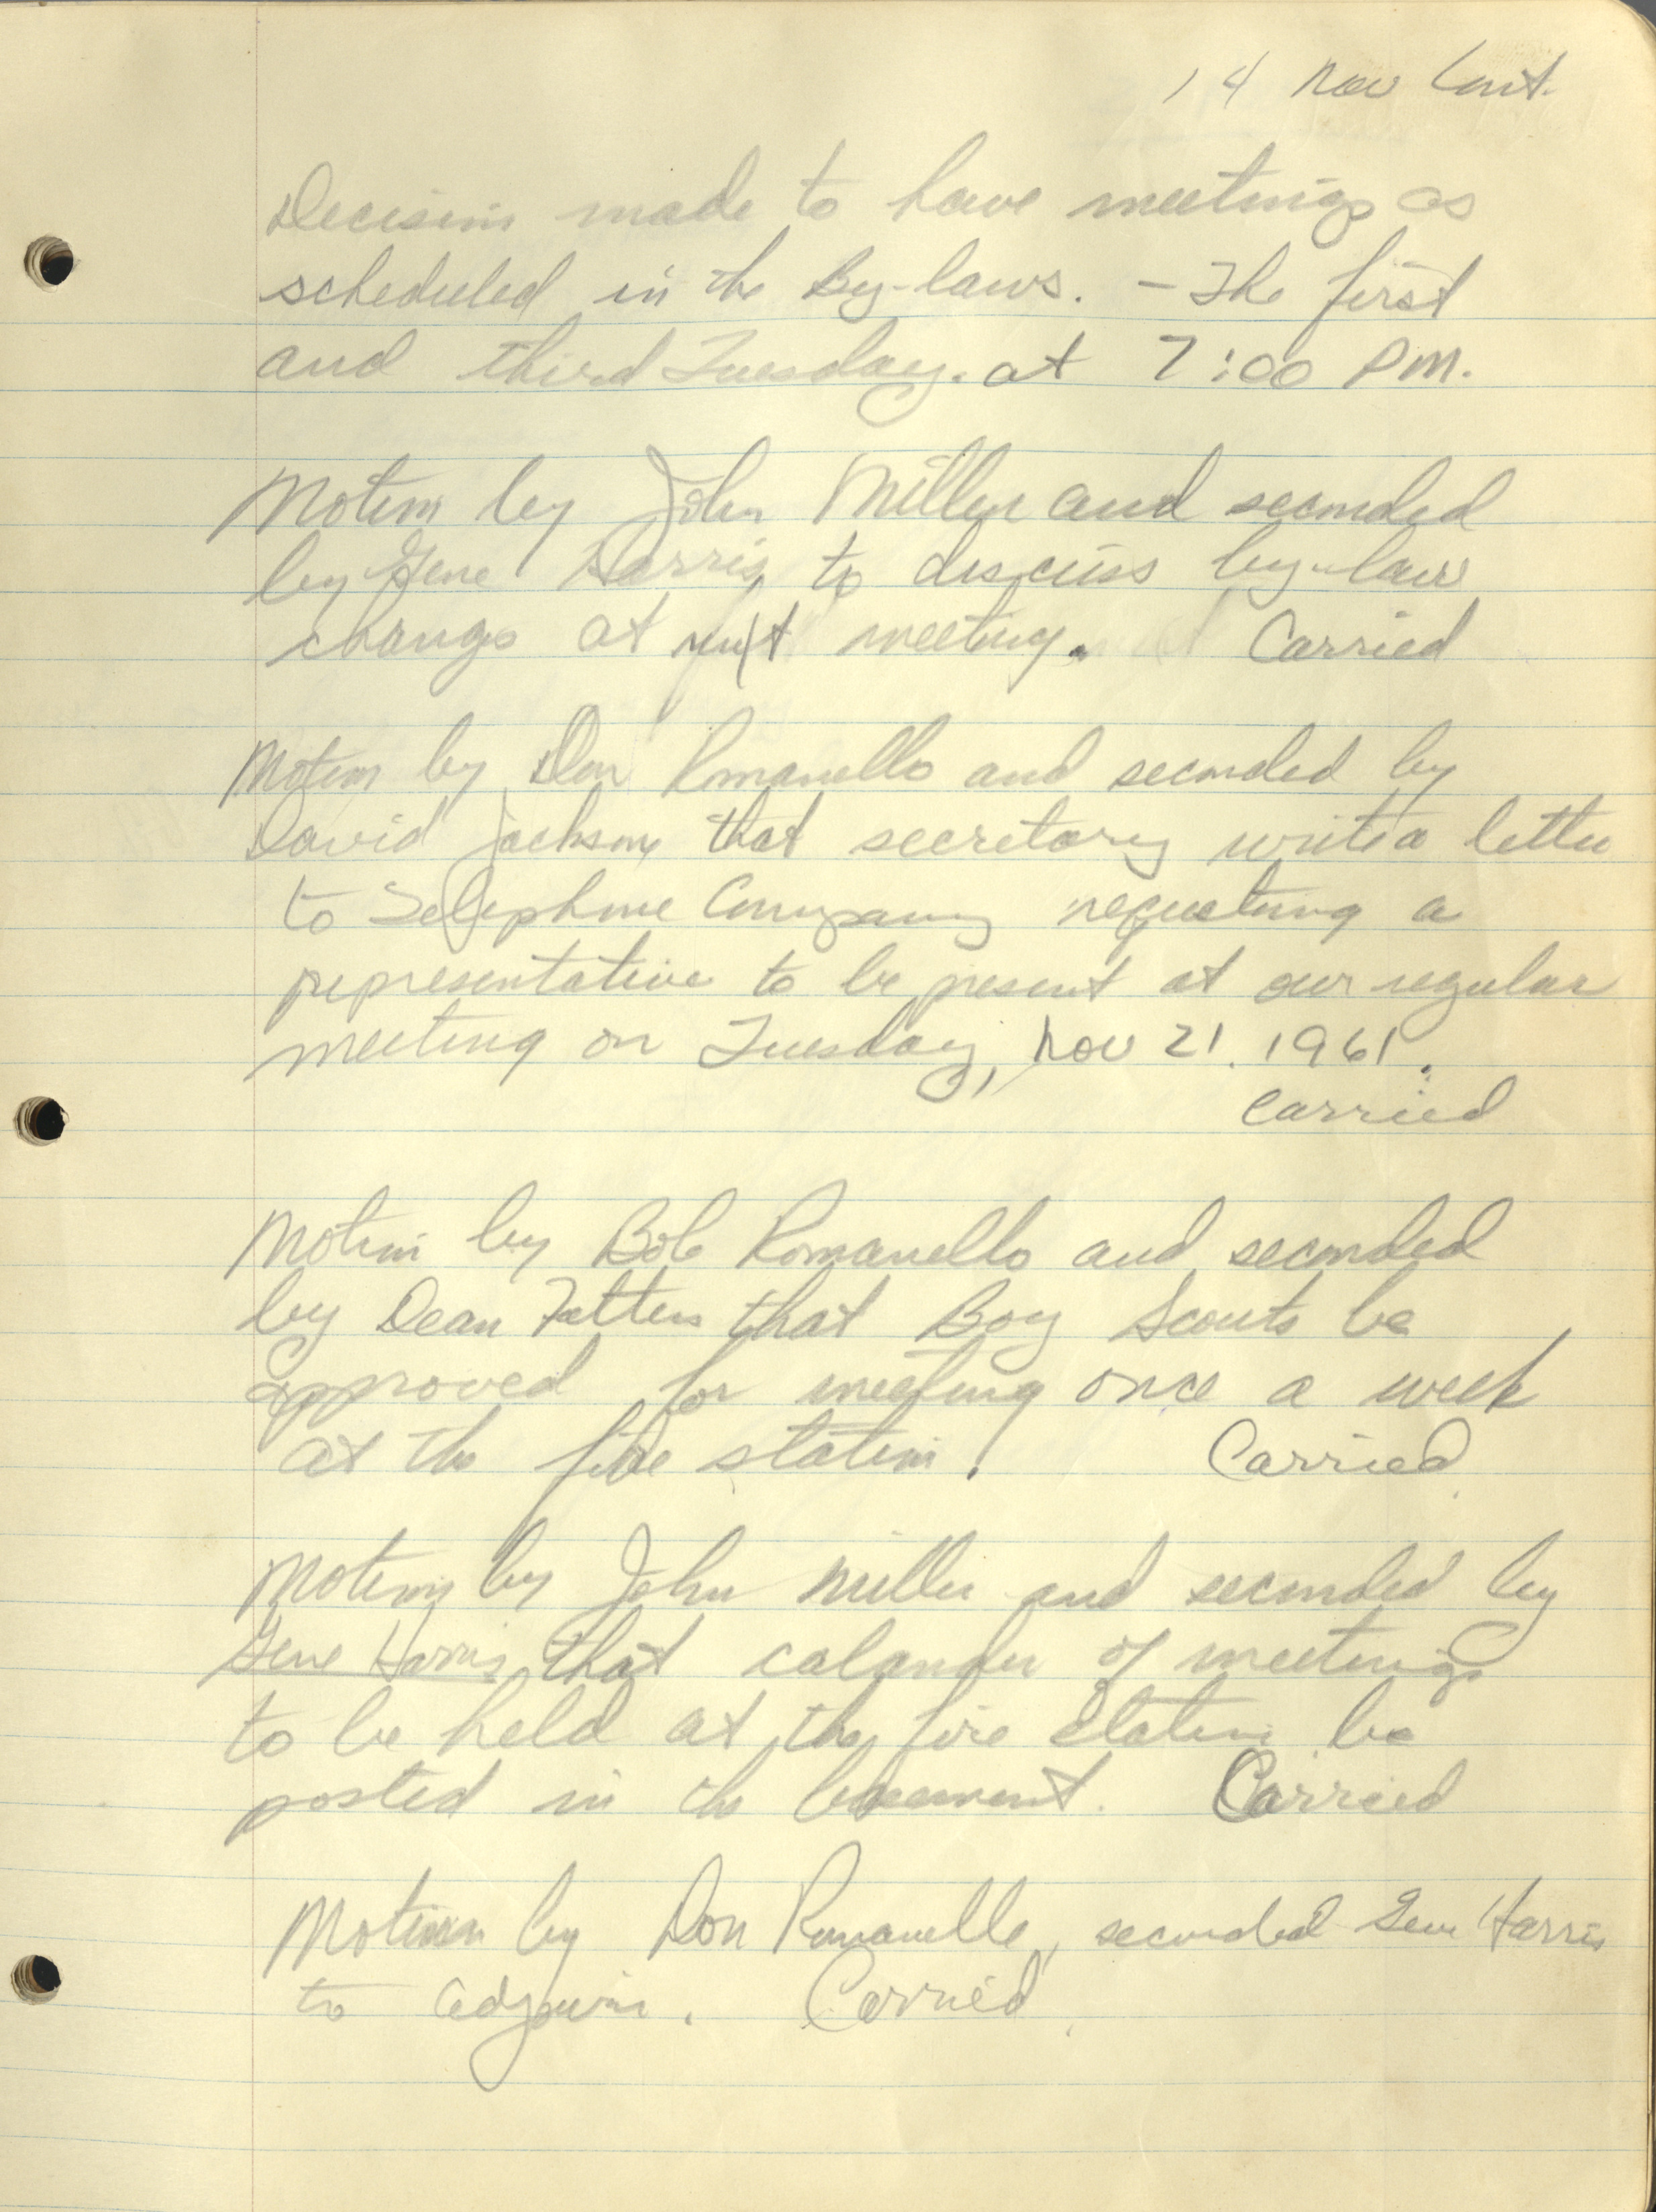 14 Nov Cont.
Decision made to have meetings as
scheduled in the By-laws. - The first
and third Tuesday. at 7:00 PM.
Motion by John Miller and seconded
by Gene Harris to discuss by-law
change at next meeting. Carried
Motion by Don Romanello and seconded by
David Jackson that secretary write a letter
to Telephone Company requesting a
representative to be present at our regular
meeting on Tuesday, Nov 21. 1961.
Carried
Motion by Bob Romanello and seconded
by Dean that Boy Scouts be
approved for meeting once a week
at the fire station. Carried
Motion by John Miller and seconded by
Gene Harris that calander of meetings
to be held at the fire station be
posted in the basement. Carried
Motion by Don Romanello, seconded Gene Harris
to adjourn. Carried